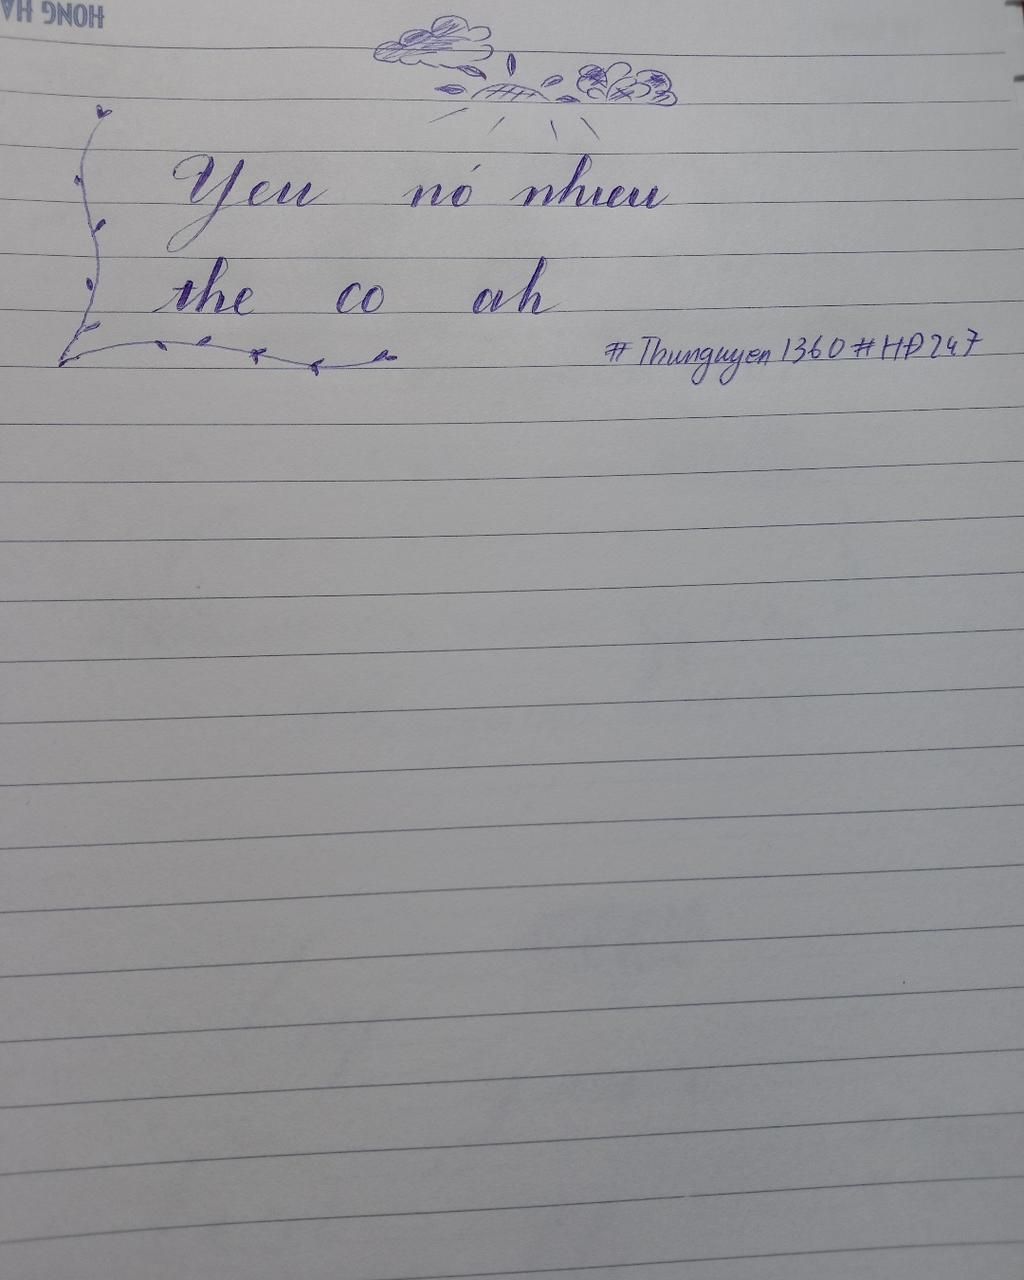 HONG HA
Yeu nó nhieu
the co ah
#Thunguyen1360#HĐ247